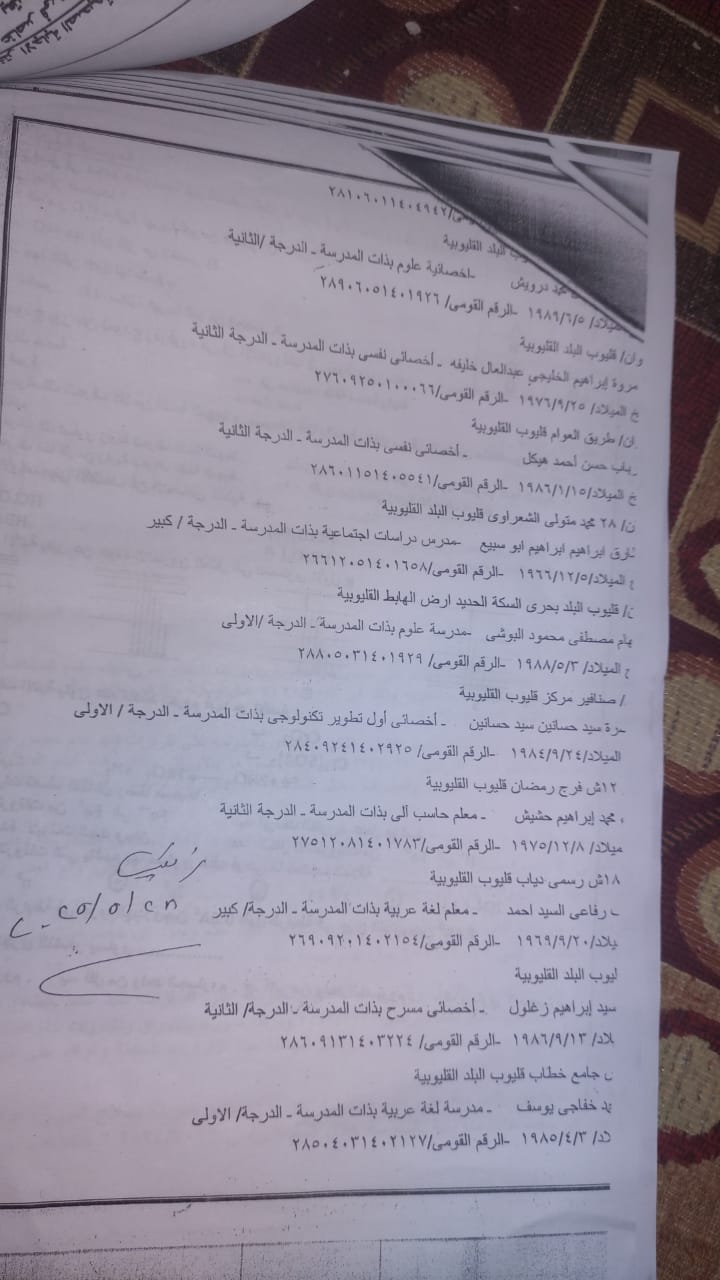 ٢٨١٠٦٠١١٤٠٤٩٤٢
البلد القليوبية
محمد درويش - اخصائية علوم بذات المدرسة - الدرجة /الثانية
الميلاد/ ١٩٨٩/٦/٥ -الرقم القومى/ ٢٨٩٠٦٠٥١٤٠١٩٢٦
وان/ قليوب البلد القليوبية
مروة إبراهيم الخليجي عبدالعال خليفه - أخصائى نفسى بذات المدرسة - الدرجة الثانية
خ الميلاد/ ١٩٧٦/٩/٢٥ -الرقم القومى/٢٧٦٠٩٢٥٠١٠٠٠٦٦
ان/ طريق العوام قليوب القليوبية
رباب حسن أحمد هيكل - أخصائى نفسى بذات المدرسة - الدرجة الثانية
خ الميلاد/١٩٨٦/١/١٥ -الرقم القومى/٢٨٦٠١١٥١٤٠٥٥٤١
ن/ ٢٨ محمد متولى الشعراوى قليوب البلد القليوبية
طارق ابراهيم ابراهيم ابو سبيع -مدرس دراسات اجتماعية بذات المدرسة - الدرجة / كبير
خ الميلاد/١٩٦٦/١٢/٥ -الرقم القومى/٢٦٦١٢٠٥١٤٠١٦٥٨
ن/ قليوب البلد بحرى السكة الحديد ارض الهابط القليوبية
هام مصطفى محمود البوشى -مدرسة علوم بذات المدرسة - الدرجة /الاولى
خ الميلاد/ ١٩٨٨/٥/٣ -الرقم القومى/ ٢٨٨٠٥٠٣١٤٠١٩٢٩
/ صنافير مركز قليوب القليوبية
رة سيد حسانين سيد حسانين - أخصائى أول تطوير تكنولوجى بذات المدرسة - الدرجة / الاولى
الميلاد/١٩٨٤/٩/٢٤ -الرقم القومى/ ٢٨٤٠٩٢٤١٤٠٢٩٢٥
١٢ش فرج رمضان قليوب القليوبية
محمد إبراهيم حشيش - معلم حاسب آلى بذات المدرسة - الدرجة الثانية
ميلاد/ ١٩٧٥/١٢/٨ -الرقم القومى/٢٧٥١٢٠٨١٤٠١٧٨٣
١٨ش رسمى دياب قليوب القليوبية
رفاعى السيد احمد - معلم لغة عربية بذات المدرسة - الدرجة/ كبير
يلاد/١٩٦٩/٩/٢٠ -الرقم القومى/ ٢٦٩٠٩٢٠١٤٠٢١٥٤
ليوب البلد القليوبية
سيد إبراهيم زغلول - أخصائى مسرح بذات المدرسة - الدرجة/ الثانية
لاد/ ١٩٨٦/٩/١٣ -الرقم القومى/ ٢٨٦٠٩١٣١٤٠٣٢٢٤
جامع خطاب قليوب البلد القليوبية
خفاجى يوسف - مدرسة لغة عربية بذات المدرسة - الدرجة/ الاولى
لاد/ ١٩٨٥/٤/٣ -الرقم القومى/٢٨٥٠٤٠٣١٤٠٢١٢٧